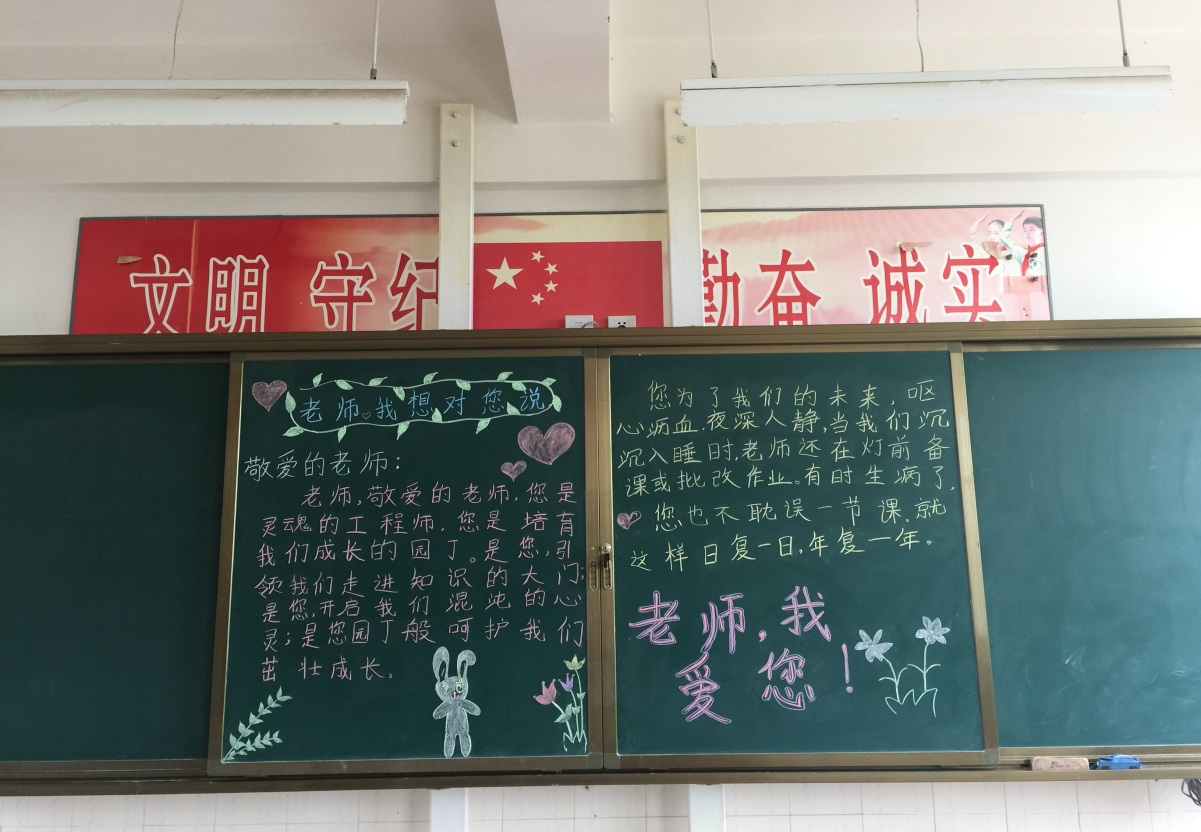 文明 守纪 勤奋 诚实
老师我想对您说
敬爱的老师：
老师，敬爱的老师.您是
灵魂的工程师，您是培育
我们成长的园丁。是您，引
领我们走进知识的大门；
是您，开启我们混沌的心
灵；是您园丁般呵护我们
茁壮成长。
您为了我们的未来，呕
心沥血.夜深人静，当我们沉
沉入睡时，老师还在灯前备
课或批改作业。有时生病了，
您也不耽误一节课.就
这样日复一日，年复一年。
老师，我
爱您！